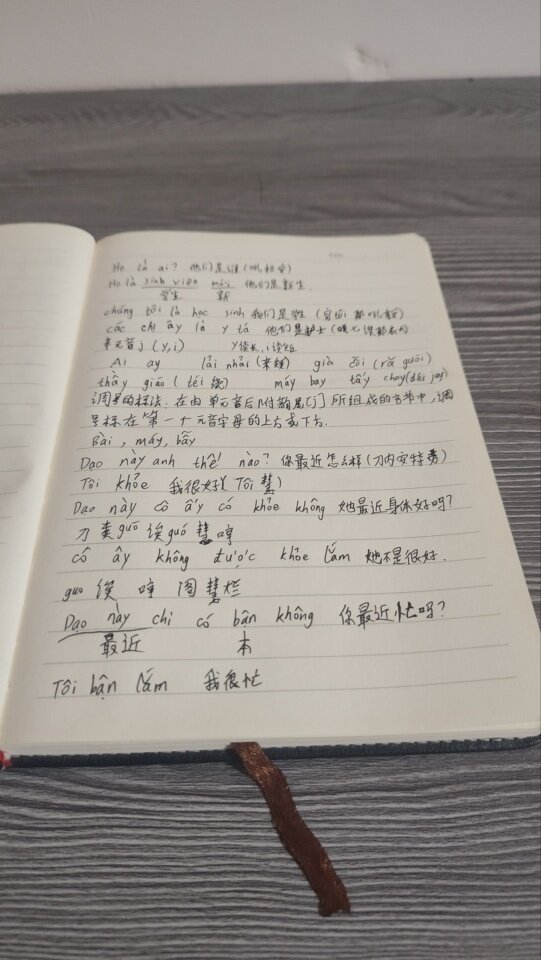 Họ là ai? 他们是谁
Họ là sinh viên mới 他们是新生
学生 新
chúng tôi là học sinh 我们是学生
các chị ấy là y tá 他们是护士
单元音 j (y, i) y读长, i读短
Ai ay lải nhải già
thầy giáo máy bay tẩy chay
调号的标法: 在由单元音后附韵尾[j]所组成的音节中, 调
号标在第一个元音字母的上方或下方.
Bài, máy, bẫy
Dạo này anh thế nào? 你最近怎么样 (刀内安特孬)
Tôi khỏe 我很好 (Tôi 慧)
Dạo này cô ấy có khỏe không 她最近身体好吗?
guō 诶 guó 慧 哼
cô ấy không được khỏe lắm 她不是很好.
guo 诶 哼 慧 烂
Dạo này chi có bận không 你最近忙吗?
最近 本
Tôi bận lắm 我很忙